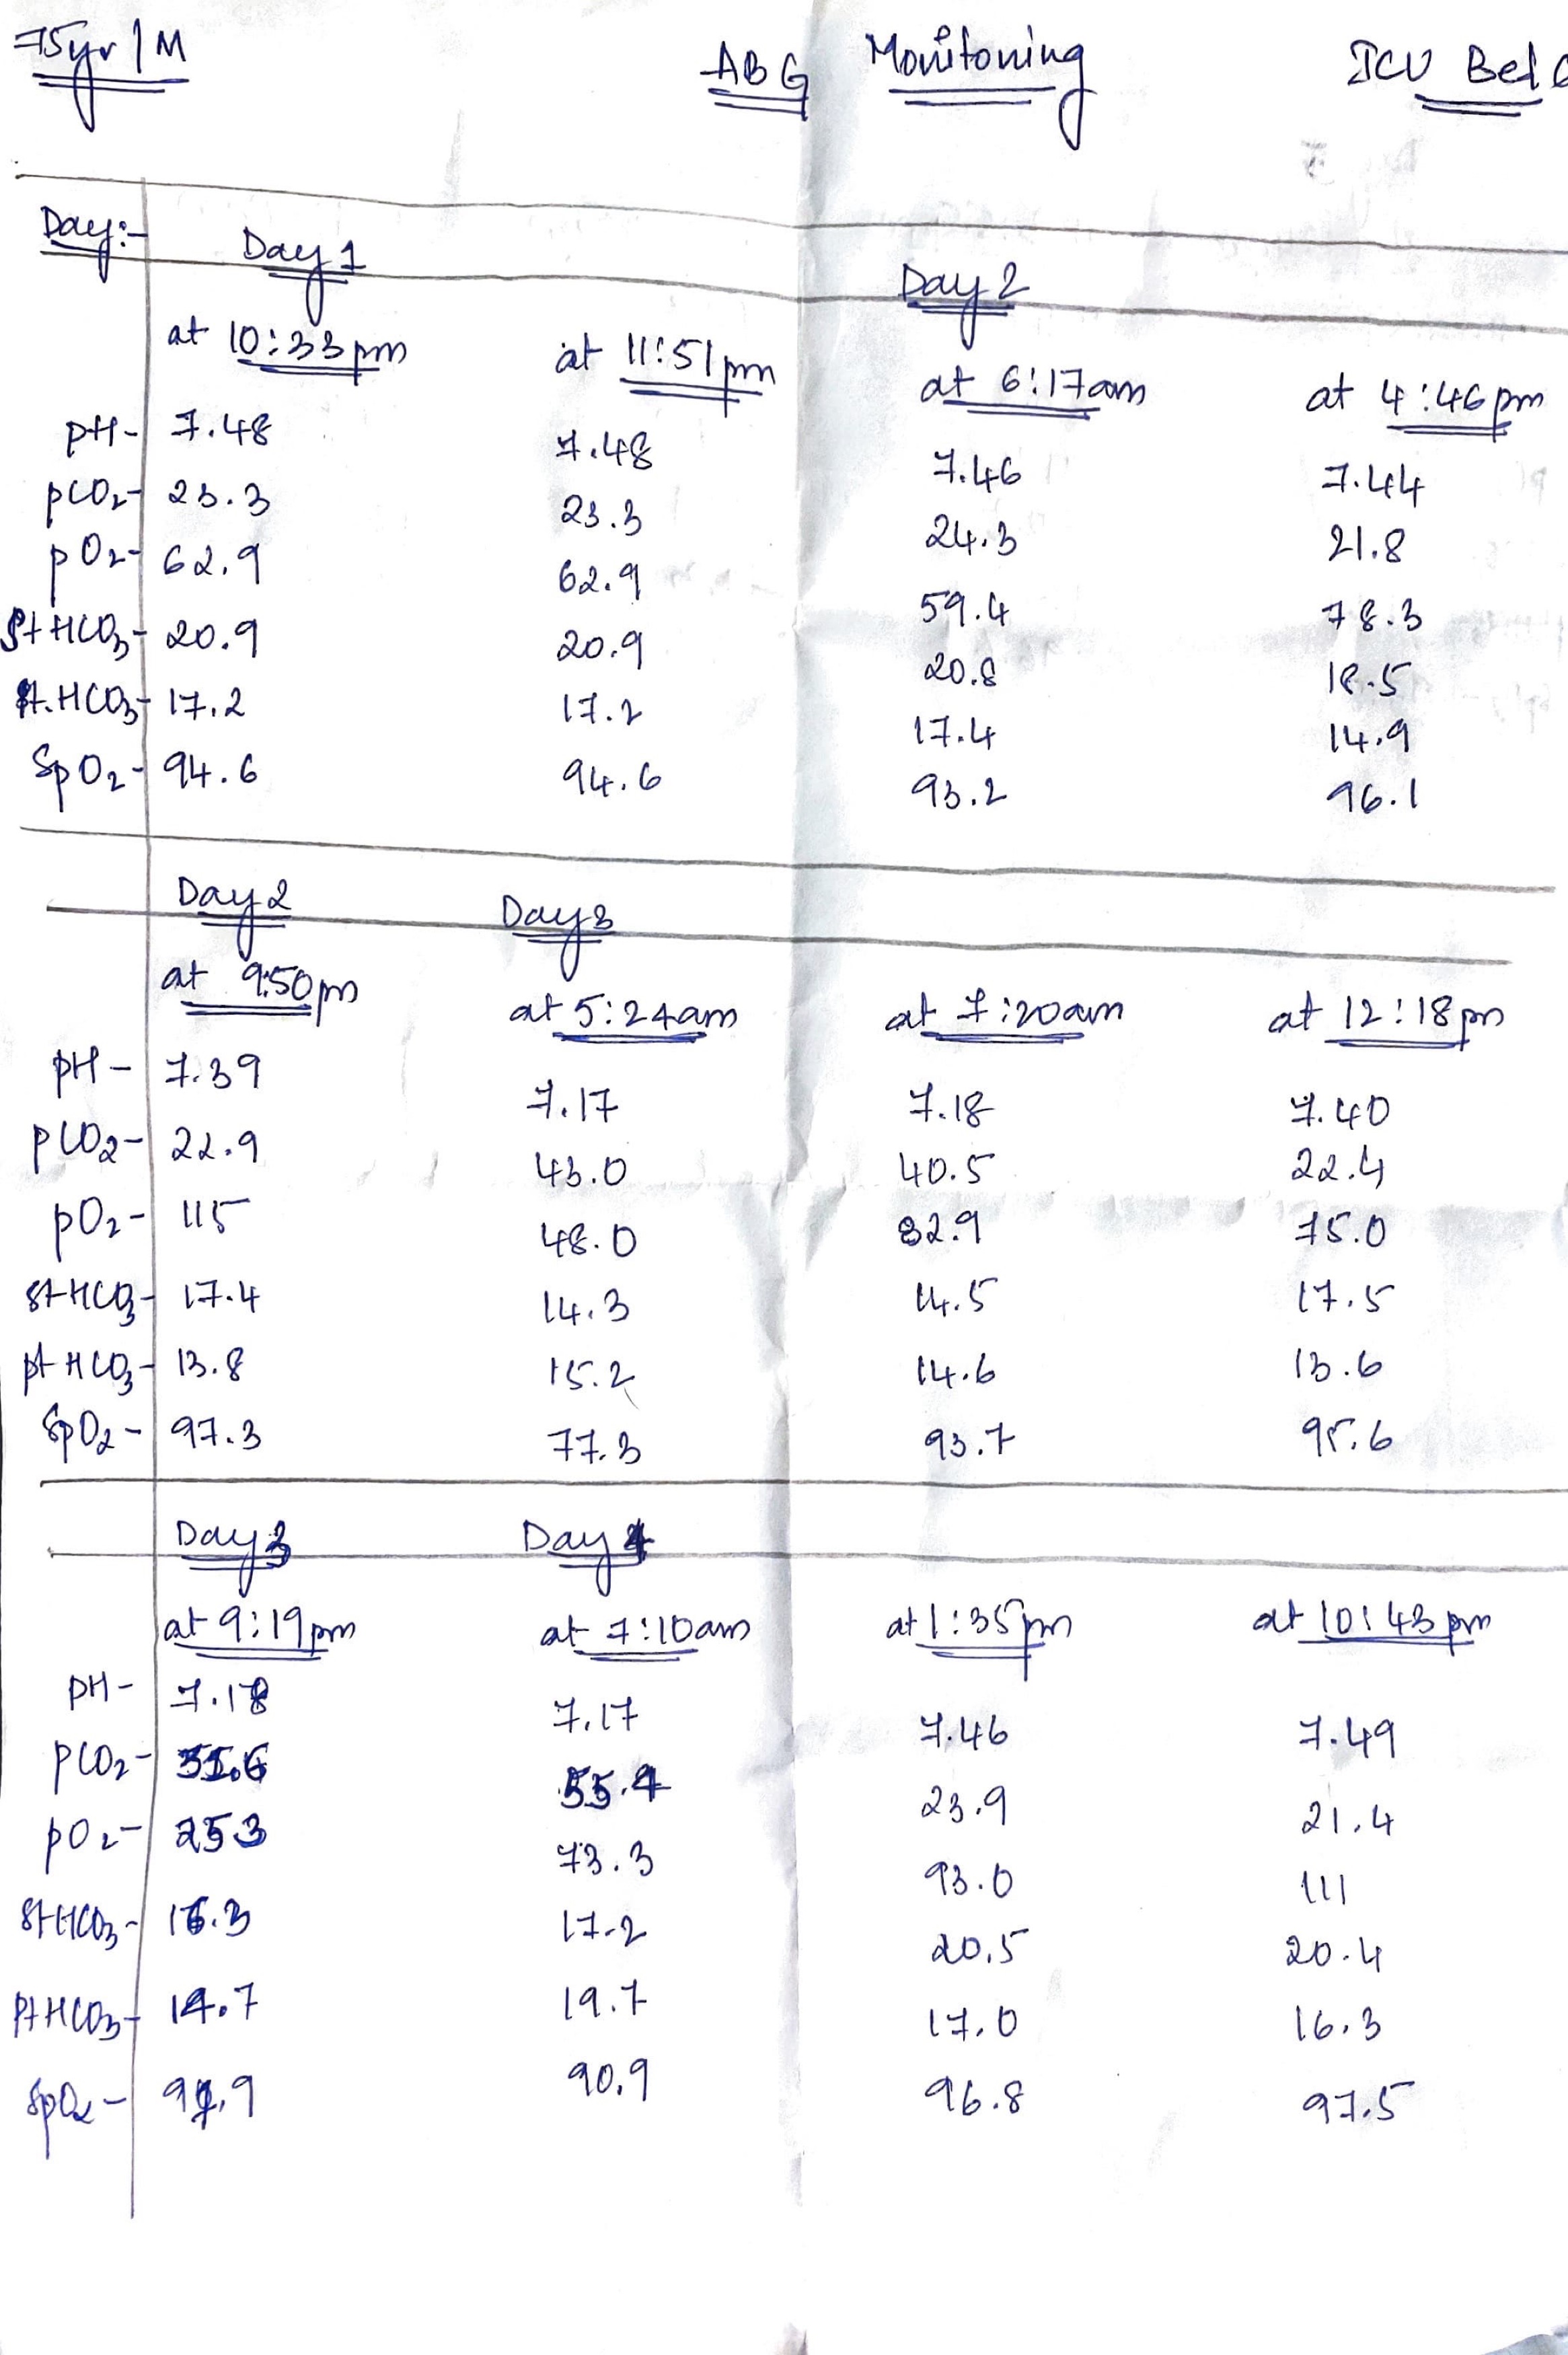 75yr | M ABG Monitoring ICU Bed
Day:- Day 1 Day 2
at 10:33pm at 11:51pm at 6:17am at 4:46pm
pH- 7.48 7.48 7.46 7.44
pCO2- 23.3 23.3 24.3 21.8
pO2- 62.9 62.9 59.4 78.3
St HCO3- 20.9 20.9 20.8 18.5
HCO3- 17.2 17.2 17.4 14.9
SpO2- 94.6 94.6 93.2 96.1
Day 2 Day 3
at 9:50pm at 5:24am at 7:20am at 12:18pm
pH- 7.39 7.17 7.18 7.40
pCO2- 22.9 43.0 40.5 22.4
pO2- 115 48.0 82.9 75.0
St HCO3- 17.4 14.3 14.5 17.5
pt HCO3- 13.8 15.2 14.6 13.6
SpO2- 97.3 77.3 93.7 95.6
Day 3 Day 4
at 9:19pm at 7:10am at 1:35pm at 10:43pm
pH- 7.18 7.17 7.46 7.49
pCO2- 55.4 23.9 21.4
pO2- 253 73.3 93.0 111
St HCO3- 16.3 17.2 20.5 20.4
Pt HCO3- 14.7 19.7 17.0 16.3
SpO2- 90.9 96.8 97.5